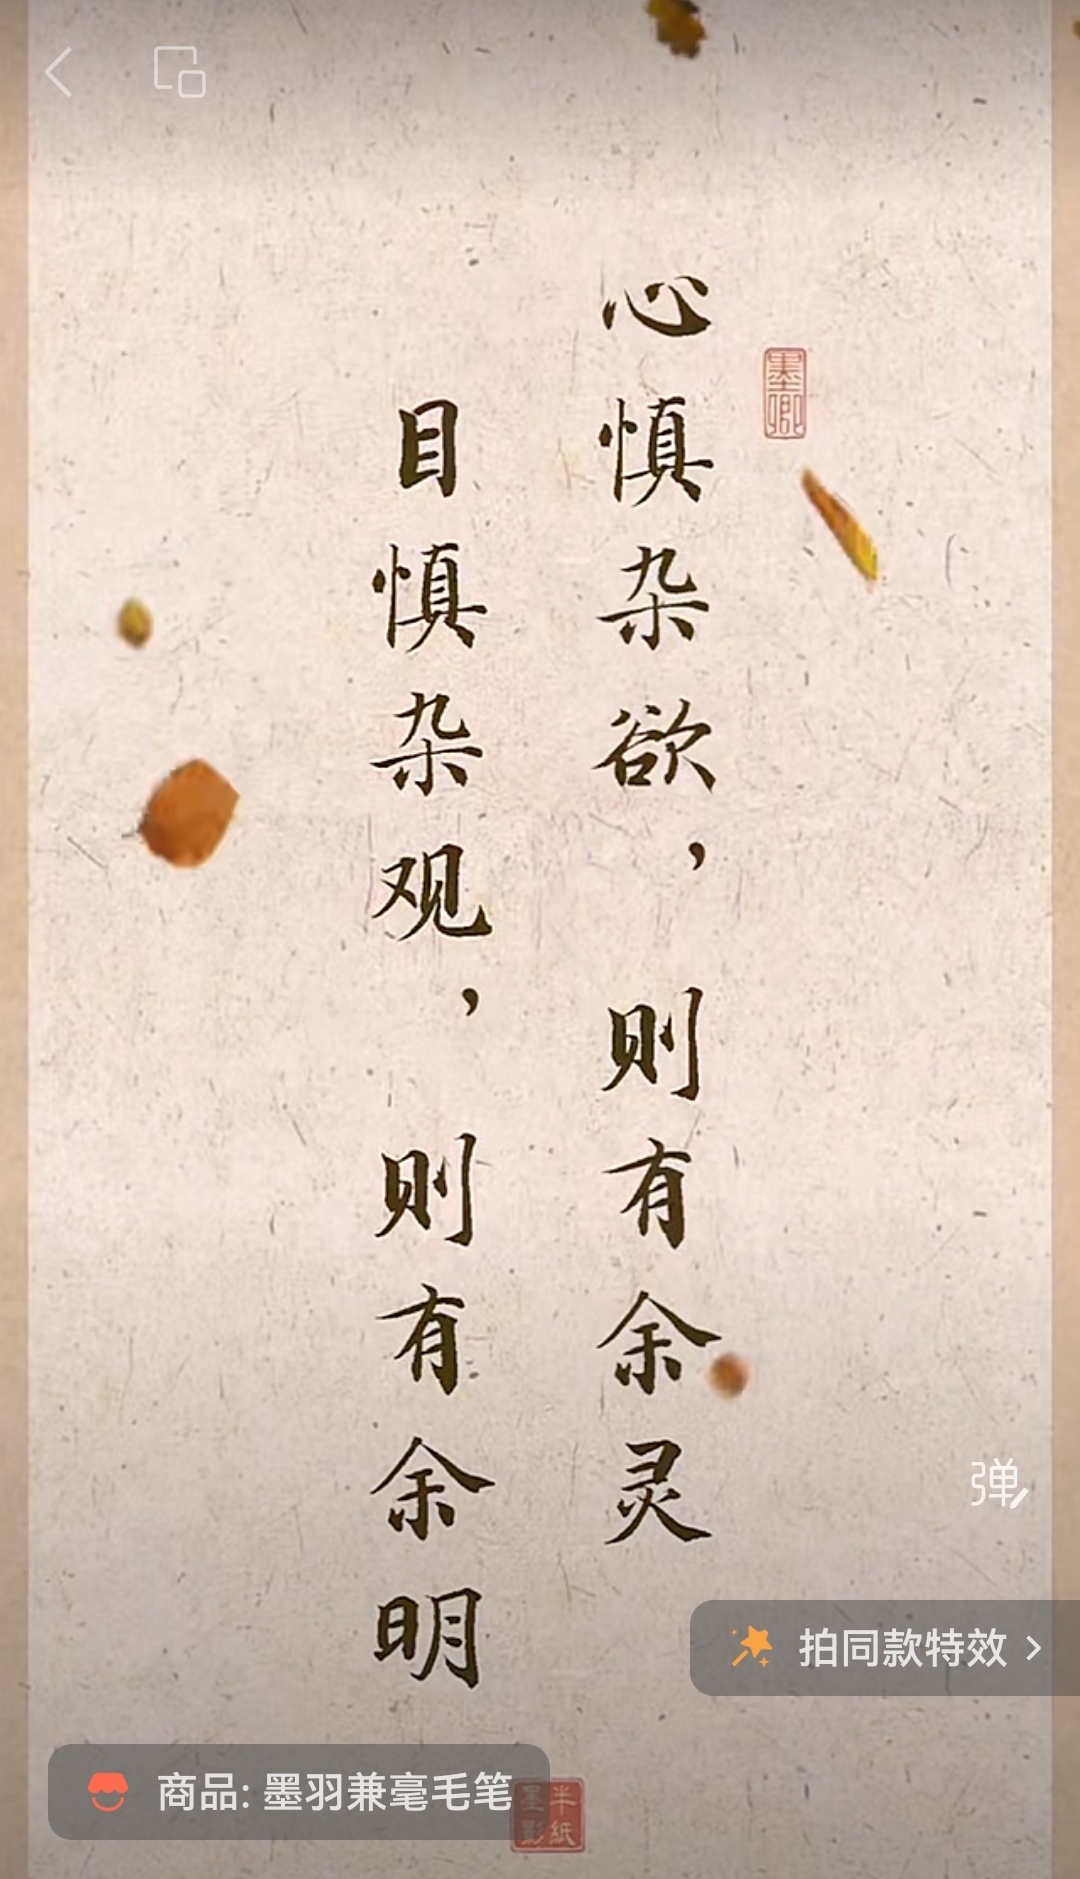 心慎杂欲，则有余灵
目慎杂观，则有余明
墨卿
弹
拍同款特效
商品: 墨羽兼毫毛笔
半纸
墨影